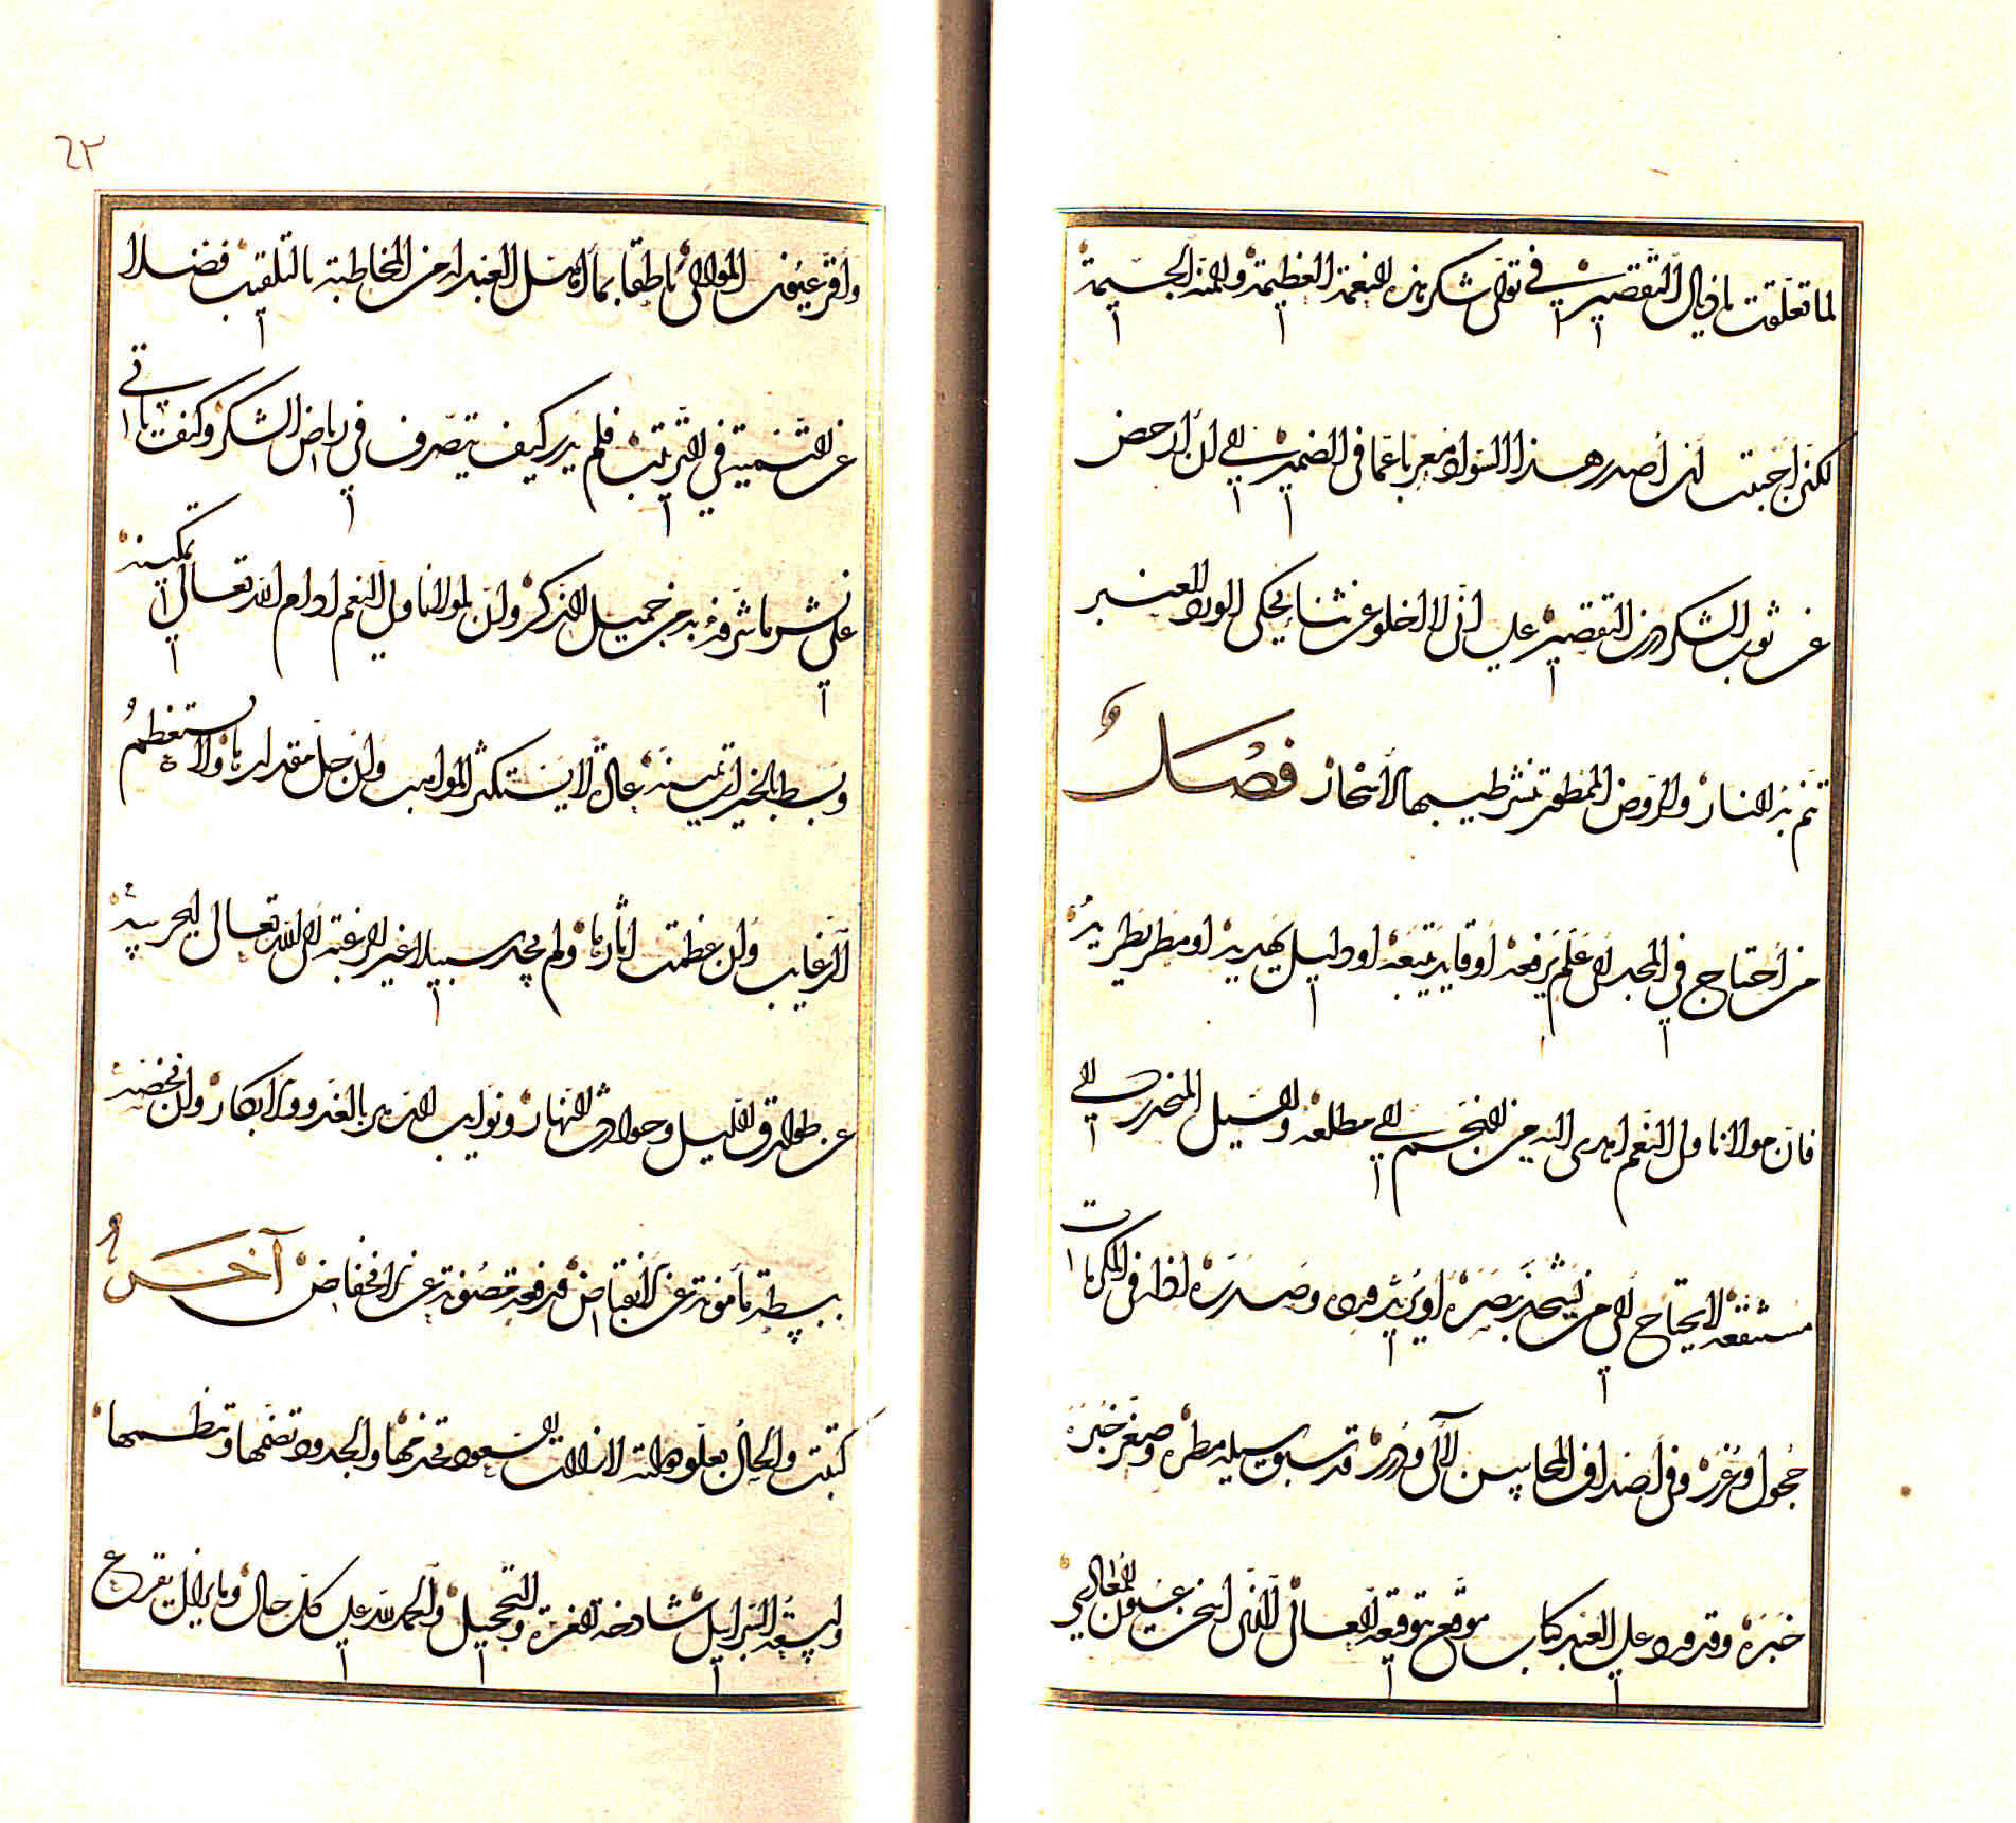 لما تعلقت باذيال التقصير في توالى شكر هذه النعمة العظيمة والمنة الجسيمة
لكنى احببت ان أصدر هذا السواد معربا عما فى الضمير الى ان أرحض
عن ثوب الشكر درن التقصير على انى لا اخلو عن ثناء يحكى الورد والعنبر
تنم به النار والروض الممطور تنشر طيبها الأسحار فصل
من أحتاج في المجد الى علم يرفعه أو قايد يتبعه او دليل يهديه او مطر يطريه
فان مولانا ولى النعم اهدى اليه من النجم الى مطلعه والسيل المنحدر الى
مستنقعه لا يحتاج الى من يشحذ بصره أو يريد ورده وصدره له في المكرمات
حجول وغرر وفى أصداف المحاسن لآلى ودرر قد سبق سيله مطره وصغر خبره
خبره وقد ورد على العبد كتاب موقع بتوقيعه العالى الذى اسخن عيون المعالى
وأقر عيون الموالى ناطقا بما أهل العبد له من المخاطبة بالتلقيب فضلا
عن التسمية في الترتيب فلم يدر كيف يتصرف في رياض الشكر وكيف ياتى
على نشر ما شرفه به من جميل الذكر وان لمولانا ولي النعم ادام الله تعالى تمكينه
وبسط بالخيرات يمينه عادة لا يستكثر المواهب وان جل مقدارها ولا يستعظم
الرغايب وان عظمت اثارها ولم يجد سبيلا غير الرغبة الى الله تعالى ليحرسه
عن طوارق الليل وحوادث النهار ونوايب الدهر بالغدو والابكار وان يخصه
ببسطة مأمونة عن الانقباض ورفعة مصونة عن الانخفاض آخر
كتبت والحال بعلو دولته لا زالت السعود تخدمها والجدود تضمها وتنظمها
واسعة السرابيل شادخة الغرة والتحجيل والحمد لله على كل حال وما يزال يقرع
٢٣